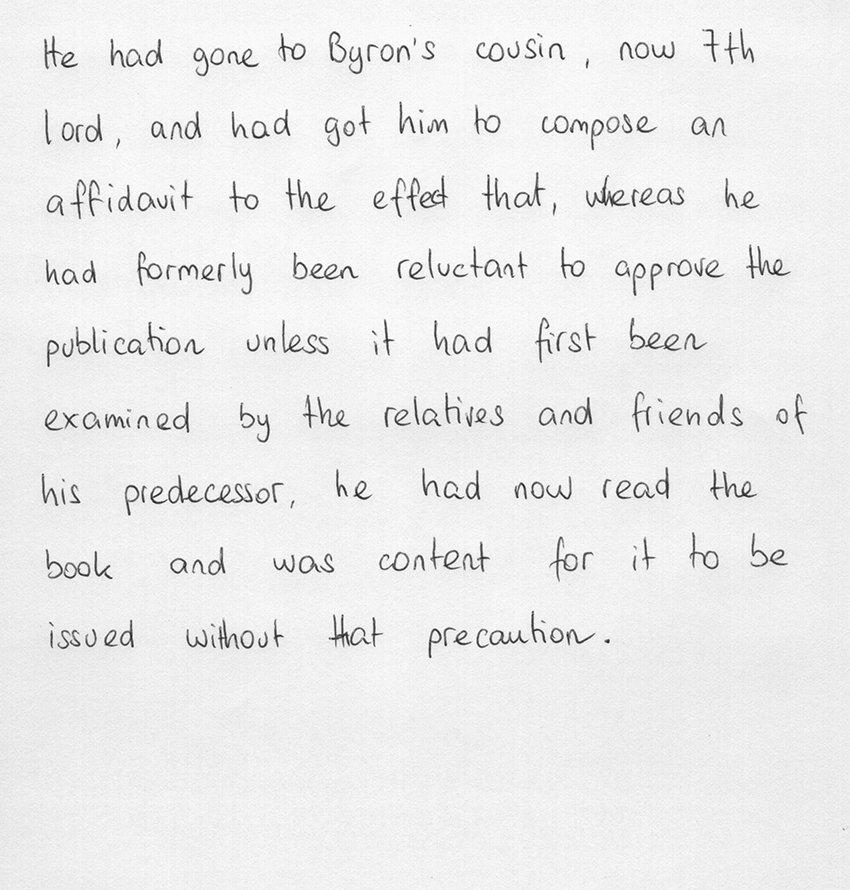 He had gone to Byron's cousin, now 7th
lord, and had got him to compose an
affidavit to the effect that, whereas he
had formerly been reluctant to approve the
publication unless it had first been
examined by the relatives and friends of
his predecessor, he had now read the
book and was content for it to be
issued without that precaution.